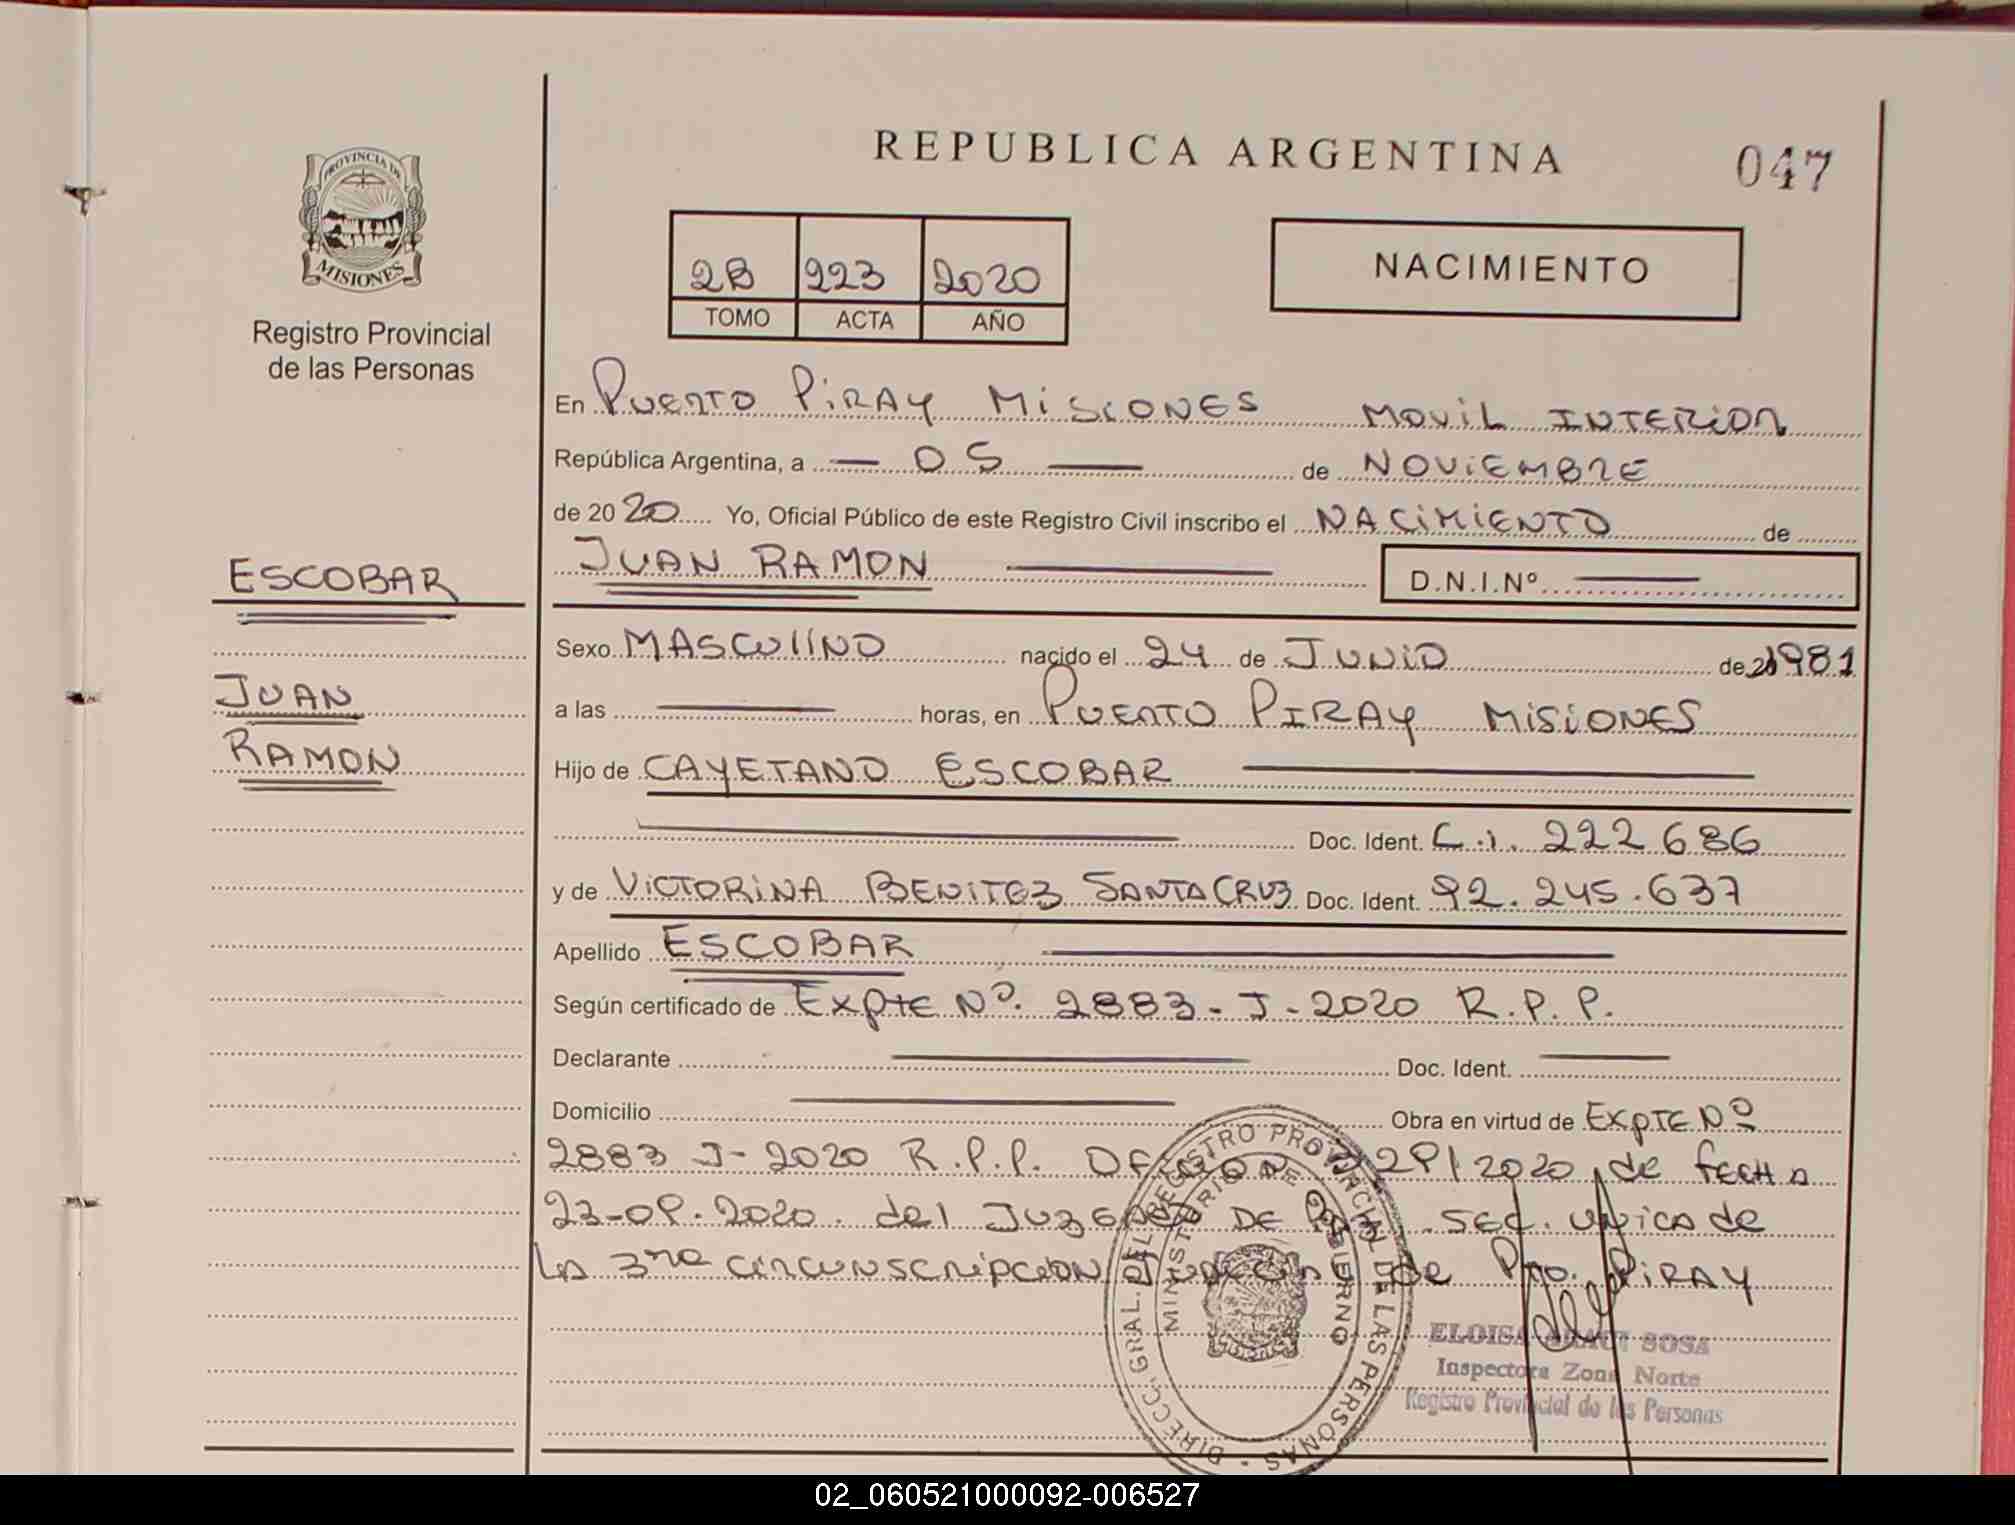 REPUBLICA ARGENTINA
047
PROVINCIA DE
MISIONES
Registro Provincial
de las Personas
2B 223 2020
TOMO ACTA AÑO
NACIMIENTO
En PUERTO PIRAY MISIONES MOVIL INTERIOR
República Argentina, a — 05 — de NOVIEMBRE
de 2020 Yo, Oficial Público de este Registro Civil inscribo el NACIMIENTO de
ESCOBAR
JUAN RAMON
D.N.I.Nº
Sexo MASCULINO nacido el 24 de JUNIO de 1981
JUAN
a las — horas, en PUERTO PIRAY MISIONES
RAMON
Hijo de CAYETANO ESCOBAR
Doc. Ident. C.I. 222686
y de VICTORINA BENITEZ SANTACRUZ Doc. Ident. 92.245.637
Apellido ESCOBAR
Según certificado de EXPTE Nº. 2883-J-2020 R.P.P.
Declarante — Doc. Ident. —
Domicilio — Obra en virtud de EXPTE Nº
2883 J-2020 R.P.P. /2020 de FECHA
23-09-2020. del JUZGADO DE PAZ. SEC. UNICA de
LA 3ra CIRCUNSCRIPCION JUDICIAL de Pto. PIRAY
DIRECC. GRAL. DEL REGISTRO PROVINCIAL DE LAS PERSONAS -
MINISTERIO DE GOBIERNO
ELOISA SOSA
Inspectora Zona Norte
Registro Provincial de las Personas
02_060521000092-006527